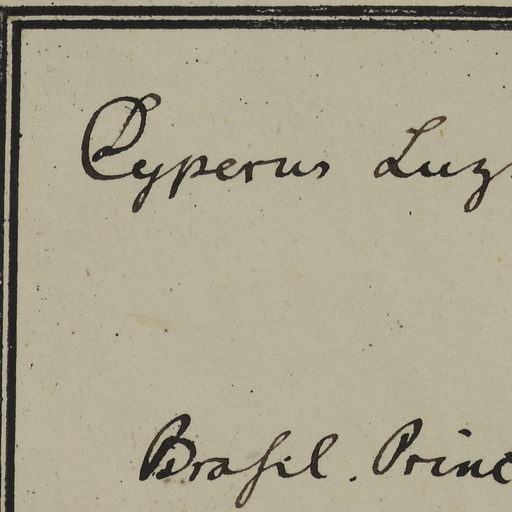 Cyperus Luz
Brasil. Princ